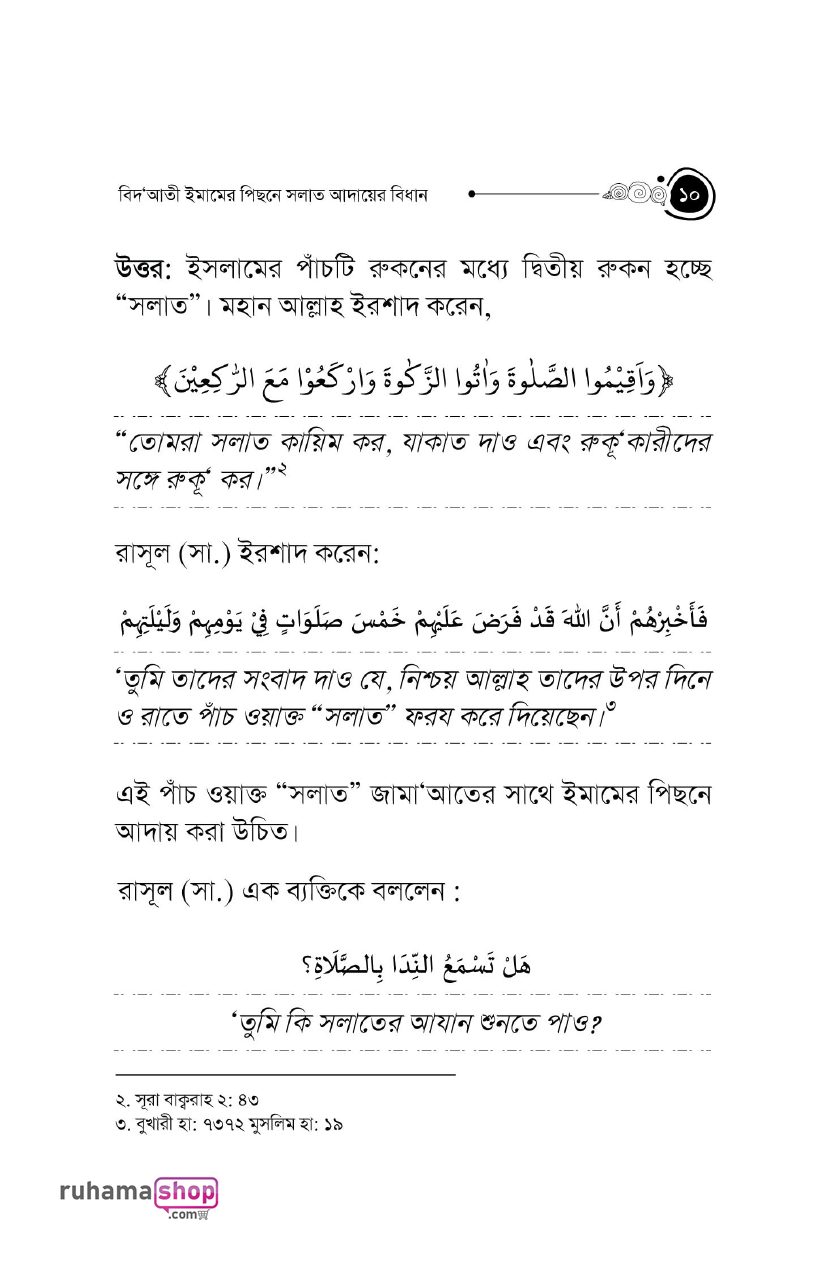 বিদ‘আতী ইমামের পিছনে সলাত আদায়ের বিধান
১০
উত্তর: ইসলামের পাঁচটি রুকনের মধ্যে দ্বিতীয় রুকন হচ্ছে
“সলাত”। মহান আল্লাহ ইরশাদ করেন,
﴿وَاَقِيْمُوا الصَّلٰوةَ وَاٰتُوا الزَّكٰوةَ وَارْكَعُوْا مَعَ الرّٰكِعِيْنَ﴾
“তোমরা সলাত কায়িম কর, যাকাত দাও এবং রুকূ‘কারীদের
সঙ্গে রুকূ‘ কর।”২
রাসূল (সা.) ইরশাদ করেন:
فَأَخْبِرْهُمْ أَنَّ اللهَ قَدْ فَرَضَ عَلَيْهِمْ خَمْسَ صَلَوَاتٍ فِيْ يَوْمِهِمْ وَلَيْلَتِهِمْ
‘তুমি তাদের সংবাদ দাও যে, নিশ্চয় আল্লাহ তাদের উপর দিনে
ও রাতে পাঁচ ওয়াক্ত “সলাত” ফরয করে দিয়েছেন।৩
এই পাঁচ ওয়াক্ত “সলাত” জামা‘আতের সাথে ইমামের পিছনে
আদায় করা উচিত।
রাসূল (সা.) এক ব্যক্তিকে বললেন :
هَلْ تَسْمَعُ النِّدَا بِالصَّلَاةِ؟
‘তুমি কি সলাতের আযান শুনতে পাও?
২. সূরা বাক্বরাহ ২: ৪৩
৩. বুখারী হা: ৭৩৭২ মুসলিম হা: ১৯
ruhamashop
.com